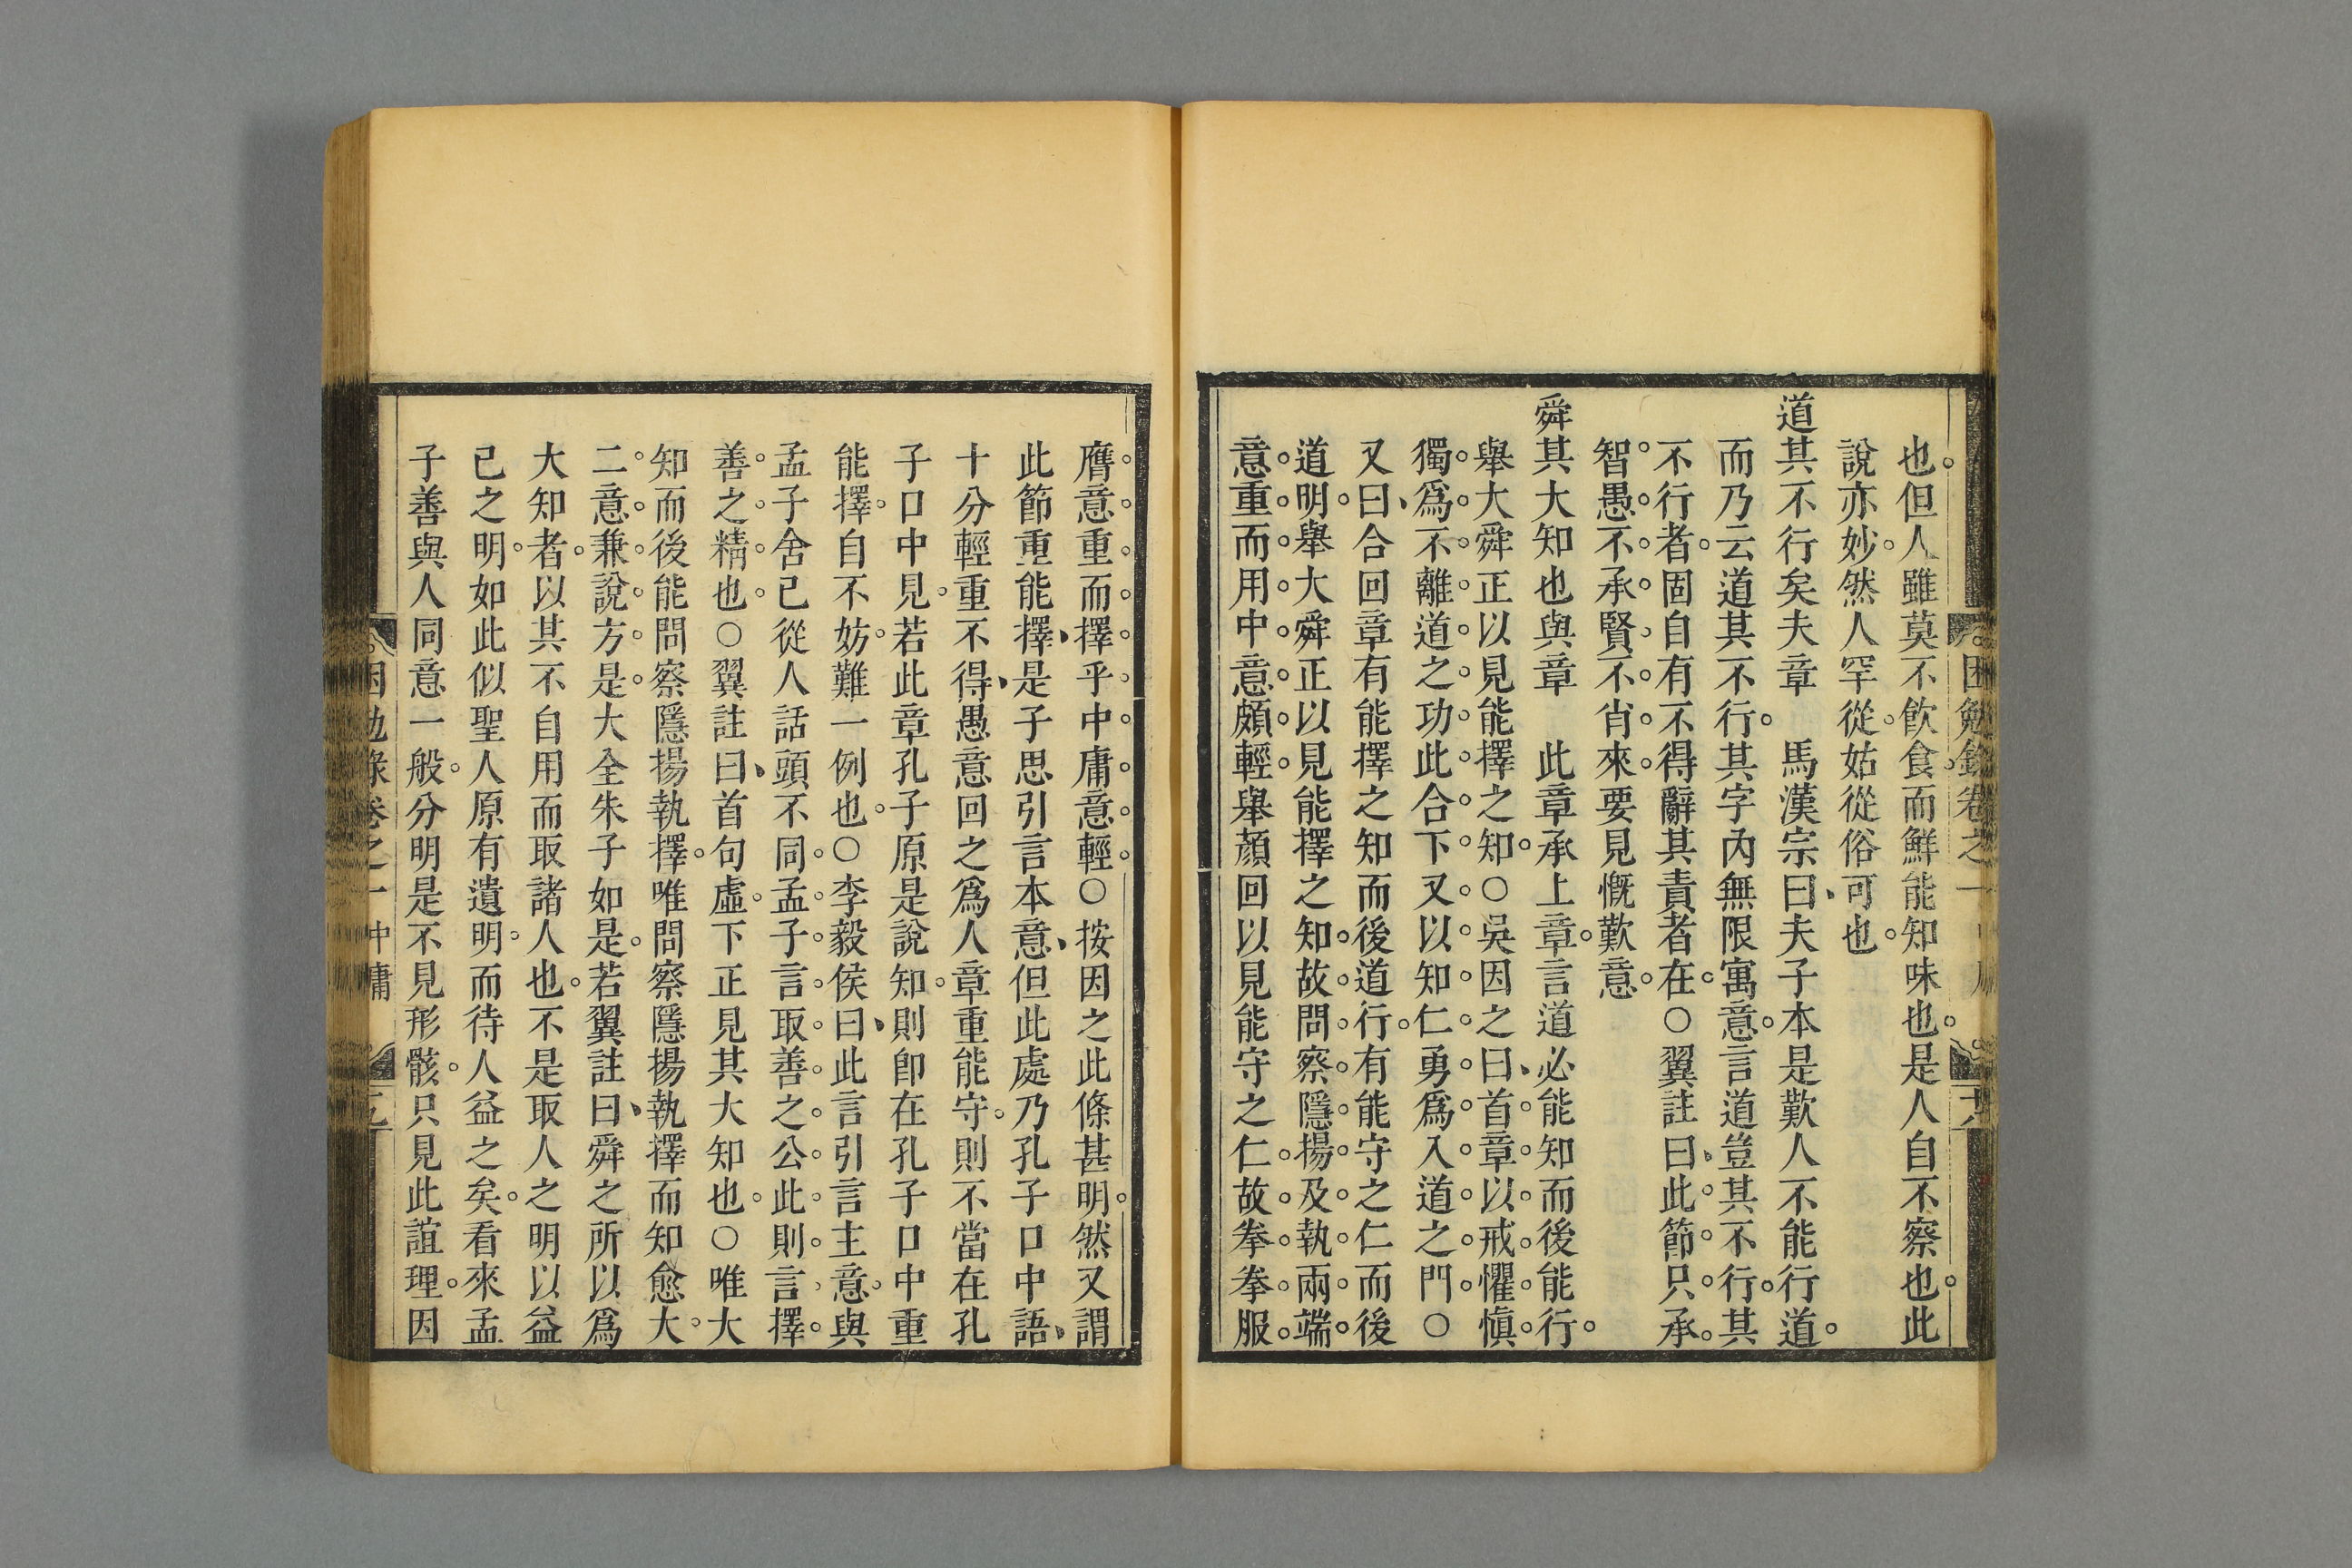 困勉錄卷之一
也但人雖莫不飲食而鮮能知味也是人自不察也此
說亦妙然人罕從姑從俗可也
道其不行矣夫章　馬漢宗曰夫子本是歎人不能行道
而乃云道其不行其字內無限寓意言道豈其不行其
不行者固自有不得辭其責者在○翼註曰此節只承
智愚不承賢不肖來要見慨歎意
舜其大知也與章　此章承上章言道必能知而後能行
舉大舜正以見能擇之知○吳因之曰首章以戒懼慎
獨為不離道之功此合下又以知仁勇為入道之門○
又曰合回章有能擇之知而後道行有能守之仁而後
道明舉大舜正以見能擇之知故問察隱揚及執兩端
意重而用中意頗輕舉顏回以見能守之仁故拳拳服
膺意重而擇乎中庸意輕○按因之此條甚明然又謂
此節重能擇是子思引言本意但此處乃孔子口中語
十分輕重不得愚意回之為人章重能守則不當在孔
子口中見若此章孔子原是說知則卽在孔子口中重
能擇自不妨難一例也○李毅侯曰此言引言主意與
孟子舍己從人話頭不同孟子言取善之公此則言擇
善之精也○翼註曰首句虛下正見其大知也○唯大
知而後能問察隱揚執擇唯問察隱揚執擇而知愈大
二意兼說方是大全朱子如是若翼註曰舜之所以為
大知者以其不自用而取諸人也不是取人之明以益
己之明如此似聖人原有遺明而待人益之矣看來孟
子善與人同意一般分明是不見形骸只見此誼理因
困勉錄卷之一　中庸